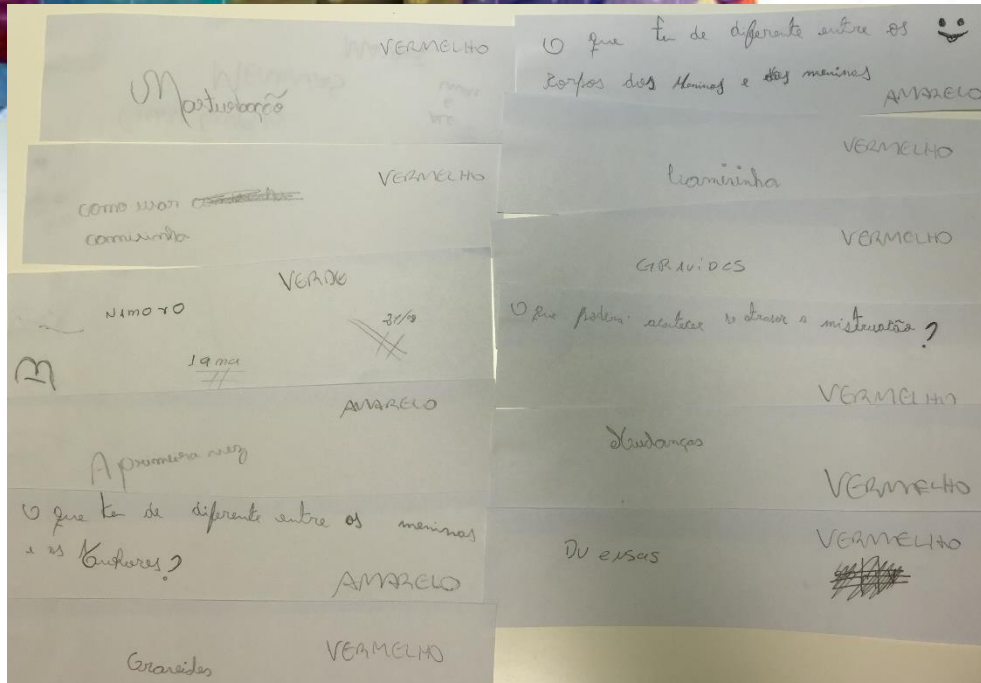 VERMELHO
Masturbação
VERMELHO
como usar
camisinha
VERDE
NAMORO
AMARELO
A primeira vez
O que tem de diferente entre os meninas
e as mulheres?
AMARELO
VERMELHO
Graveides
O que tem de diferente entre os
corpos dos meninos e das meninas
AMARELO
VERMELHO
Camisinha
VERMELHO
GRAVIDES
O que podem acontecer se atrasar a mistruatão?
VERMELHO
Mudanças
VERMELHO
VERMELHO
DU ENSAS